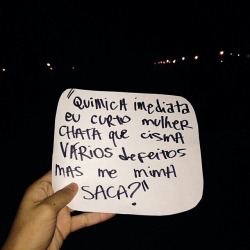 "QUIMICA imediata
eu curto mulher
CHATA que cisma
VÁRIOS defeitos
MAS me mimA
SACA?"